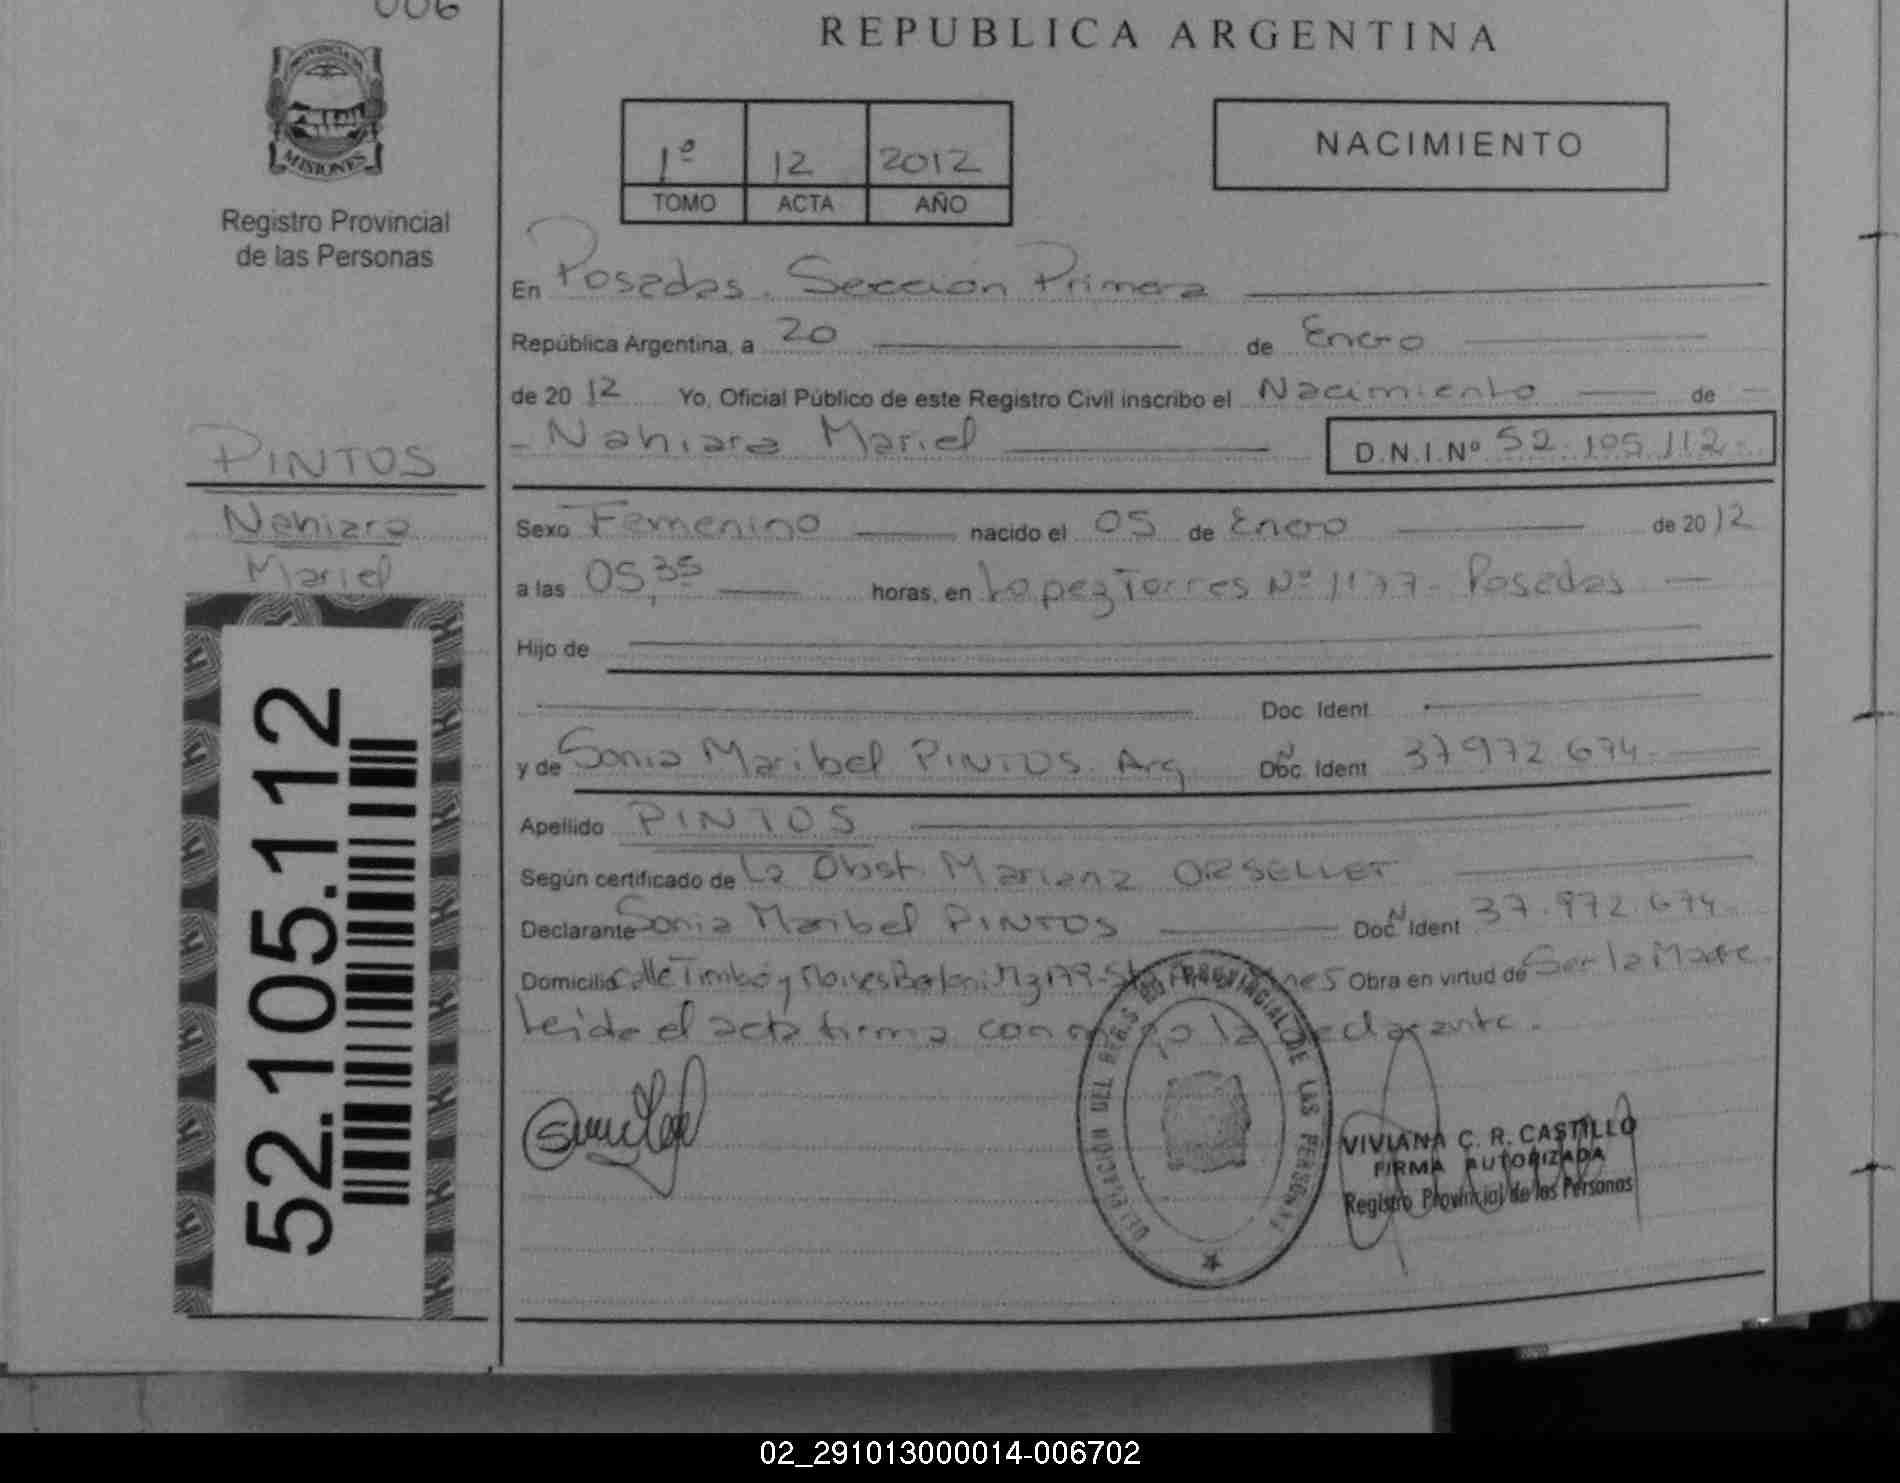 006
REPUBLICA ARGENTINA
PROVINCIA DE
MISIONES
Registro Provincial
de las Personas
1º 12 2012
TOMO ACTA AÑO
NACIMIENTO
En Posadas. Sección Primera
República Argentina, a 20 de Enero
de 2012 Yo, Oficial Público de este Registro Civil inscribo el Nacimiento de
Nahiara Mariel D.N.I.Nº 52.105.112-
PINTOS
Nahiara
Mariel
52.105.112
Sexo Femenino nacido el 05 de Enero de 2012
a las 05,35 horas, en Lopez Torres Nº 1177- Posadas
Hijo de
Doc. Ident
y de Sonia Maribel PINTOS. Arg Doc. Ident 37972674-
Apellido PINTOS
Según certificado de La Obst. Mariana ORSELLET
Declarante Sonia Maribel PINTOS Doc Ident 37.972.674-
Domicilio Calle Timbó y Moises Bertoni Mz 179- Obra en virtud de Ser la Madre.
Leida el acta firma conmigo la declarante.
DELEGACION DEL REG. PROVINCIAL DE LAS PERSONAS
VIVIANA C. R. CASTILLO
FIRMA AUTORIZADA
Registro Provincial de las Personas
02_291013000014-006702